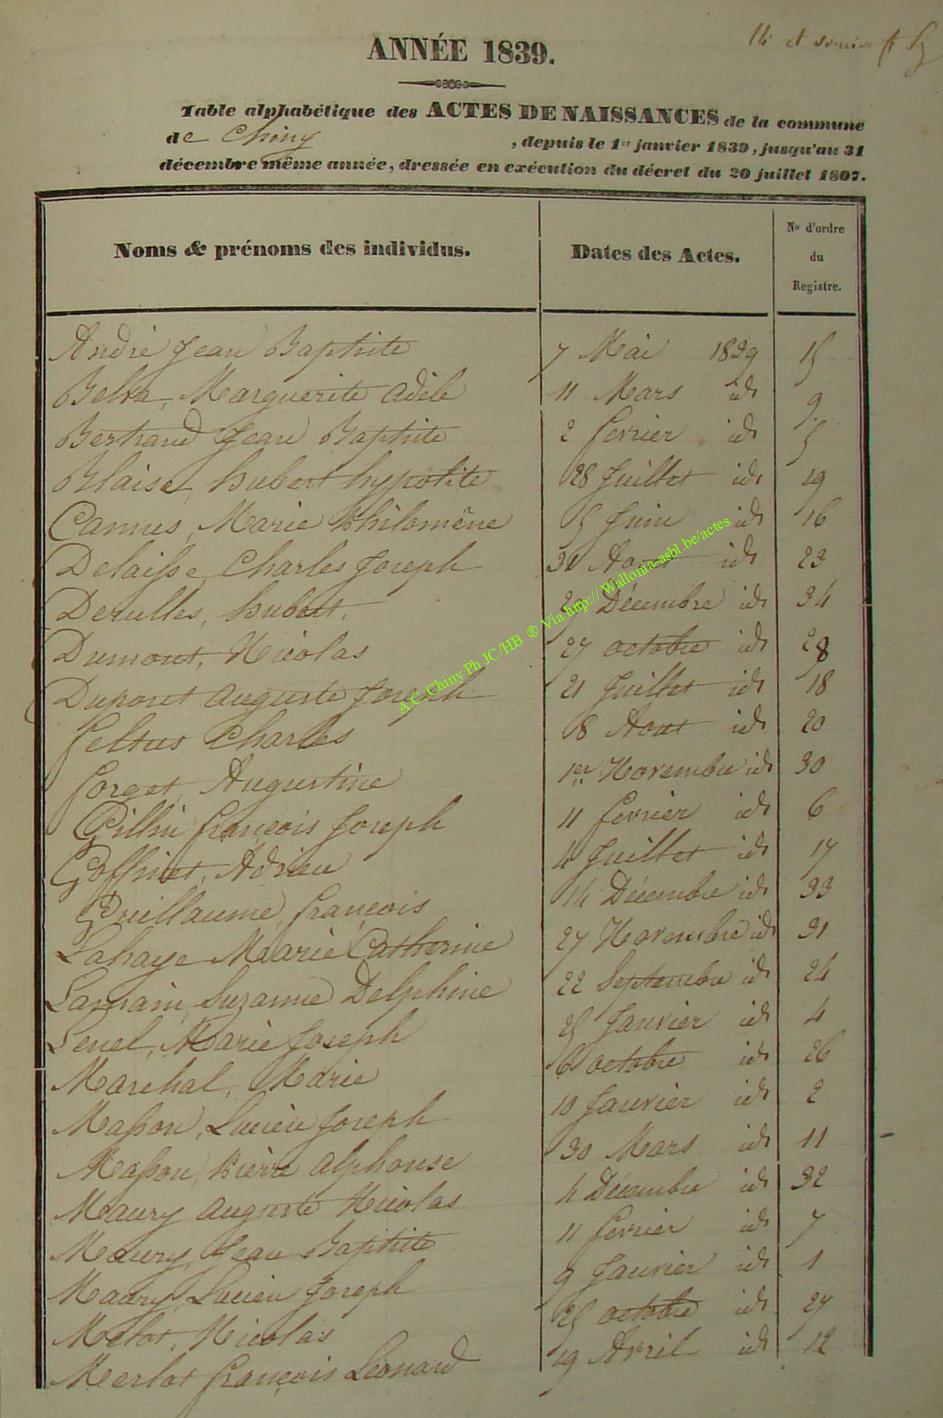 14 et
ANNÉE 1839.
Table alphabétique des ACTES DE NAISSANCES de la commune
de Chiny , depuis le 1er janvier 1839, jusqu'au 31
décembre même année, dressée en exécution du décret du 20 juillet 1807.
Noms & prénoms des individus. Dates des Actes. No d'ordre du Registre.
André Jean Baptiste 7 Mai 1839 15
Belva, Marguerite adèle 11 Mars id 9
Bertrand Jean Baptiste 2 fevrier id 5
Blaise hubert hypolite 28 Juillet id 19
Cannus, Marie Philomène 15 Juin id 16
Delaisse Charles Joseph 30 Aout id 23
Derulles, hubert, Décembre id 34
Dumont, Nicolas 27 octobre id 28
Dupont auguste Joseph 21 Juillet id 18
feltus Charles 8 Aout id 20
forget Augustine 1er Novembre id 30
Gillin françois Joseph 11 fevrier id 6
Goffinet, Adrien 4 Juillet id 17
Guillaume, françois 14 Décembre id 33
Lahaye Marie Catherine 27 Novembre id 31
Lamain, Suzanne Delphine 22 Septembre id 24
Lenel, Marie Joseph 25 Janvier id 4
Marchal, Marie 6 octobre id 26
Masson, Lucien Joseph 10 Janvier id 2
Masson, Pierre alphonse 30 Mars id 11
Maury auguste Nicolas 4 Décembre id 32
Maury, Jean Baptiste 11 fevrier id 7
Maury, Lucien Joseph 9 Janvier id 1
Melot, Nicolas 25 octobre id 27
Merlot françois Léonard 19 Avril id 12
A.C. Chiny Ph JC/HB ® Via http://Wallonia-asbl.be/actes